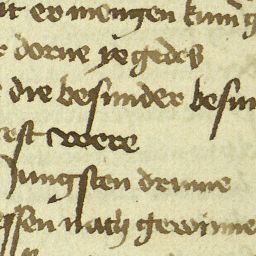 it er mengen kun
dorne ye gedes
die besunder besun
est were
Jungsten drume
ssen nach gewinne